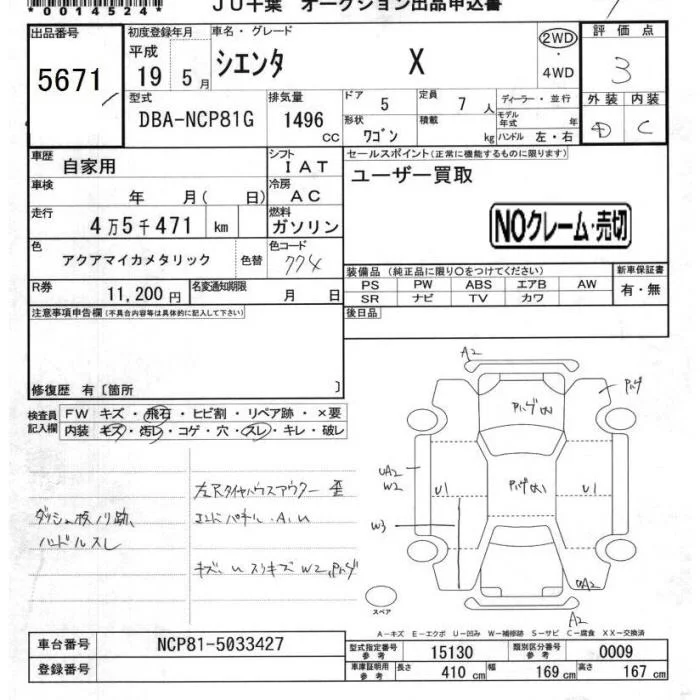 *0014524*
JU千葉 オークション出品申込書
出品番号 初度登録年月 車名・グレード 2WD 評価点
5671 平成 19年 5月 シエンタ X 4WD 3
型式 排気量 ドア 5 定員 7人 ディーラー・並行 外装 内装
DBA-NCP81G 1496cc 形状 ワゴン 積載 kg モデル年式 年 ハンドル 左・右 C
車歴 自家用 シフト IAT セールスポイント(正常に機能するものに限ります)
車検 年 月( 日) 冷房 AC ユーザー買取
走行 4万5千471 km 燃料 ガソリン NOクレーム・売切
色 アクアマイカメタリック 色替 色コード 774
装備品(純正品に限り○をつけてください) 新車保証書
PS PW ABS エアB AW 有・無
SR ナビ TV カワ
R券 11,200円 名変通知期限 月 日 後日品
注意事項申告欄(不具合内容等は具体的に記入して下さい)
修復歴 有〔箇所 〕
検査員記入欄 FW キズ・飛石・ヒビ割・リペア跡・×要
内装 キズ・汚レ・コゲ・穴・スレ・キレ・破レ
ダッシュ板ノリ跡、
ハンドルスレ
左Rタイヤハウスアウター歪
エンドパネル・A、U
キズ、U スリキズ W2、
A2
UA2
W2
U1
U1
W3
A2
スペア
A2
A-キズ E-エクボ U-凹み W-補修跡 S-サビ C-腐食 XX-交換済
車台番号 NCP81-5033427 型式指定番号 参考 15130 類別区分番号 参考 0009
登録番号 車庫証明用 参考 長さ 410cm 幅 169cm 高さ 167cm